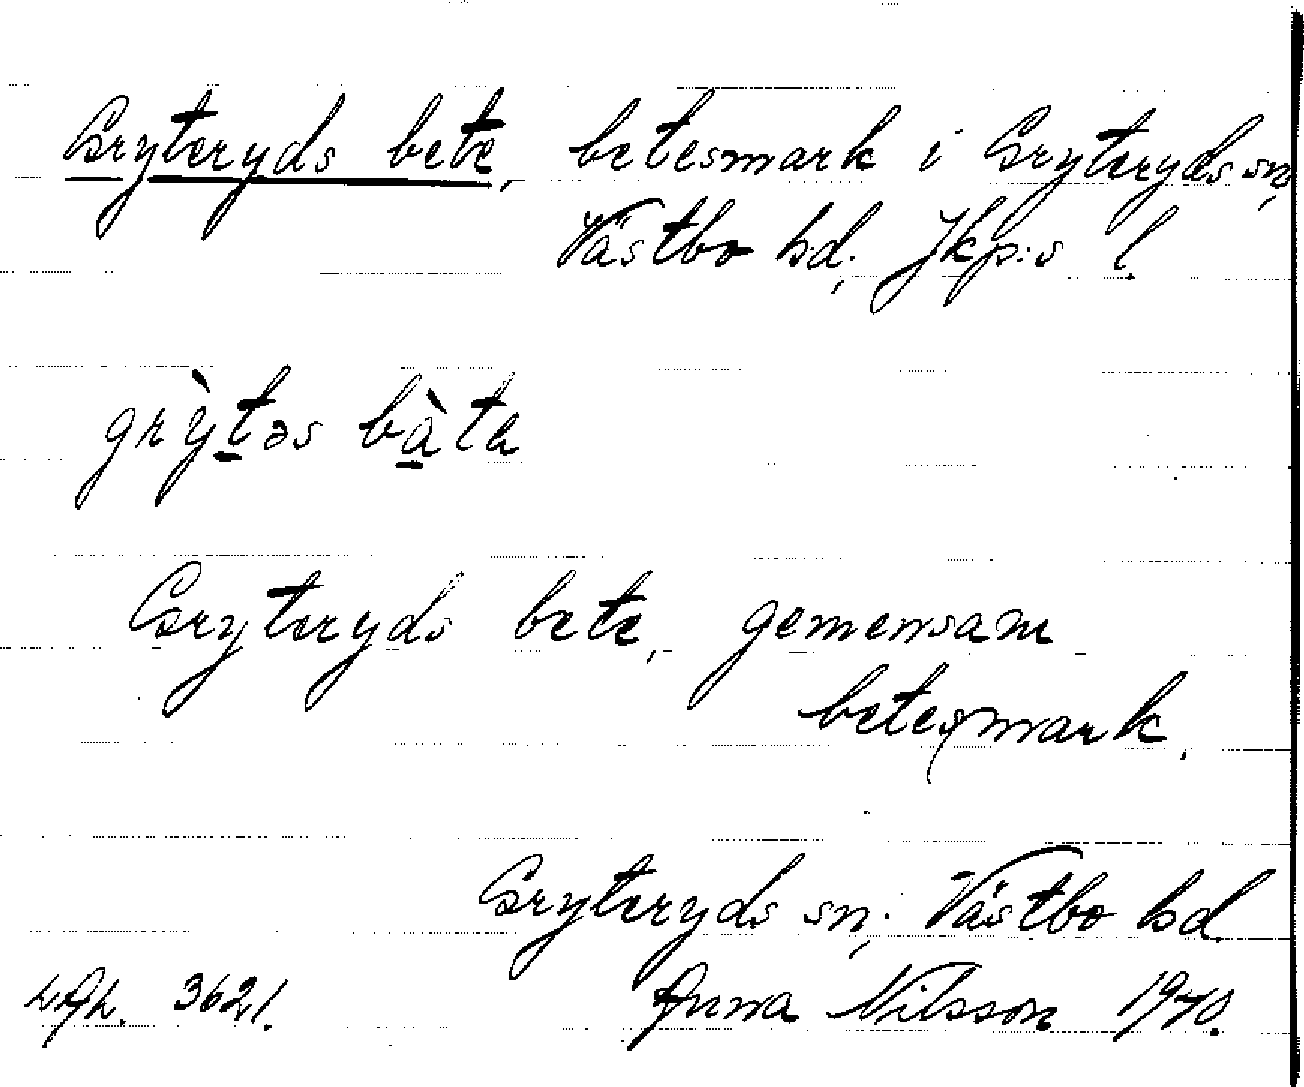 Gryteryds bete, betesmark i Gryteryds sn,
Västbo hd, Jkp:s l.
grỳtəs bàta
Gryteryds bete, gemensam
betesmark.
Gryteryds sn; Västbo hd.
3621. Anna Nilsson 1940.